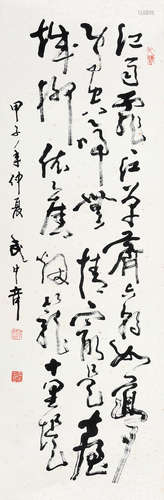 江雨霏霏江草齊六朝如夢
鳥空啼無情最是臺
城柳依舊烟籠十里堤
甲子年仲夏 武中奇